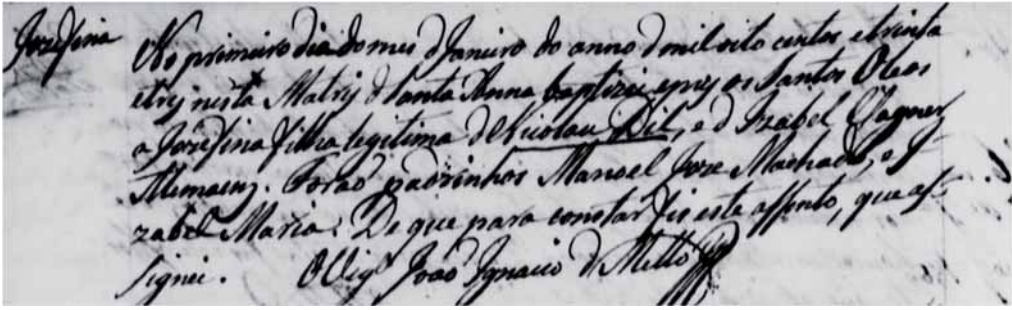 Jozefina
No primeiro dia do mes d Janeiro do anno d mil oito centos e trinta
e trez nesta Matriz d Santa Anna baptizei e puz os Santos Oleos
a Jozefina filha legitima d Nicolau Dil, e d Izabel Wagner
Alemaens. Foraõ padrinhos Manoel Joze Machado, e J-
zabel Maria. De que para constar fis este assento, que as-
signei. O Vigº João Ignacio d Mello